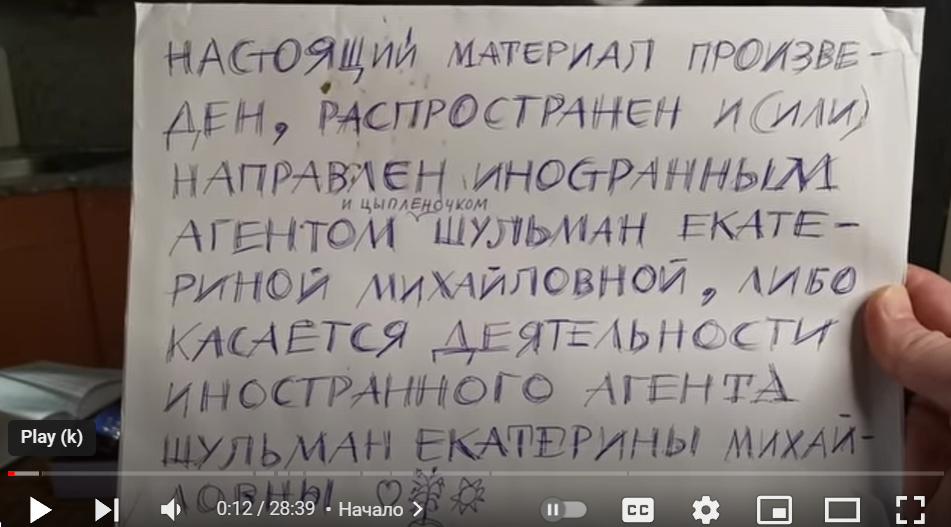 НАСТОЯЩИЙ МАТЕРИАЛ ПРОИЗВЕ-
ДЕН, РАСПРОСТРАНЕН И (ИЛИ)
НАПРАВЛЕН ИНОСРАННЫМ
И ЦЫПЛЕНОЧКОМ
АГЕНТОМ ШУЛЬМАН ЕКАТЕ-
РИНОЙ МИХАЙЛОВНОЙ, ЛИБО
КАСАЕТСЯ ДЕЯТЕЛЬНОСТИ
ИНОСТРАННОГО АГЕНТА
Play (k)
ШУЛЬМАН ЕКАТЕРИНЫ МИХАЙ-
ЛОВНЫ
0:12 / 28:39 • Начало
CC